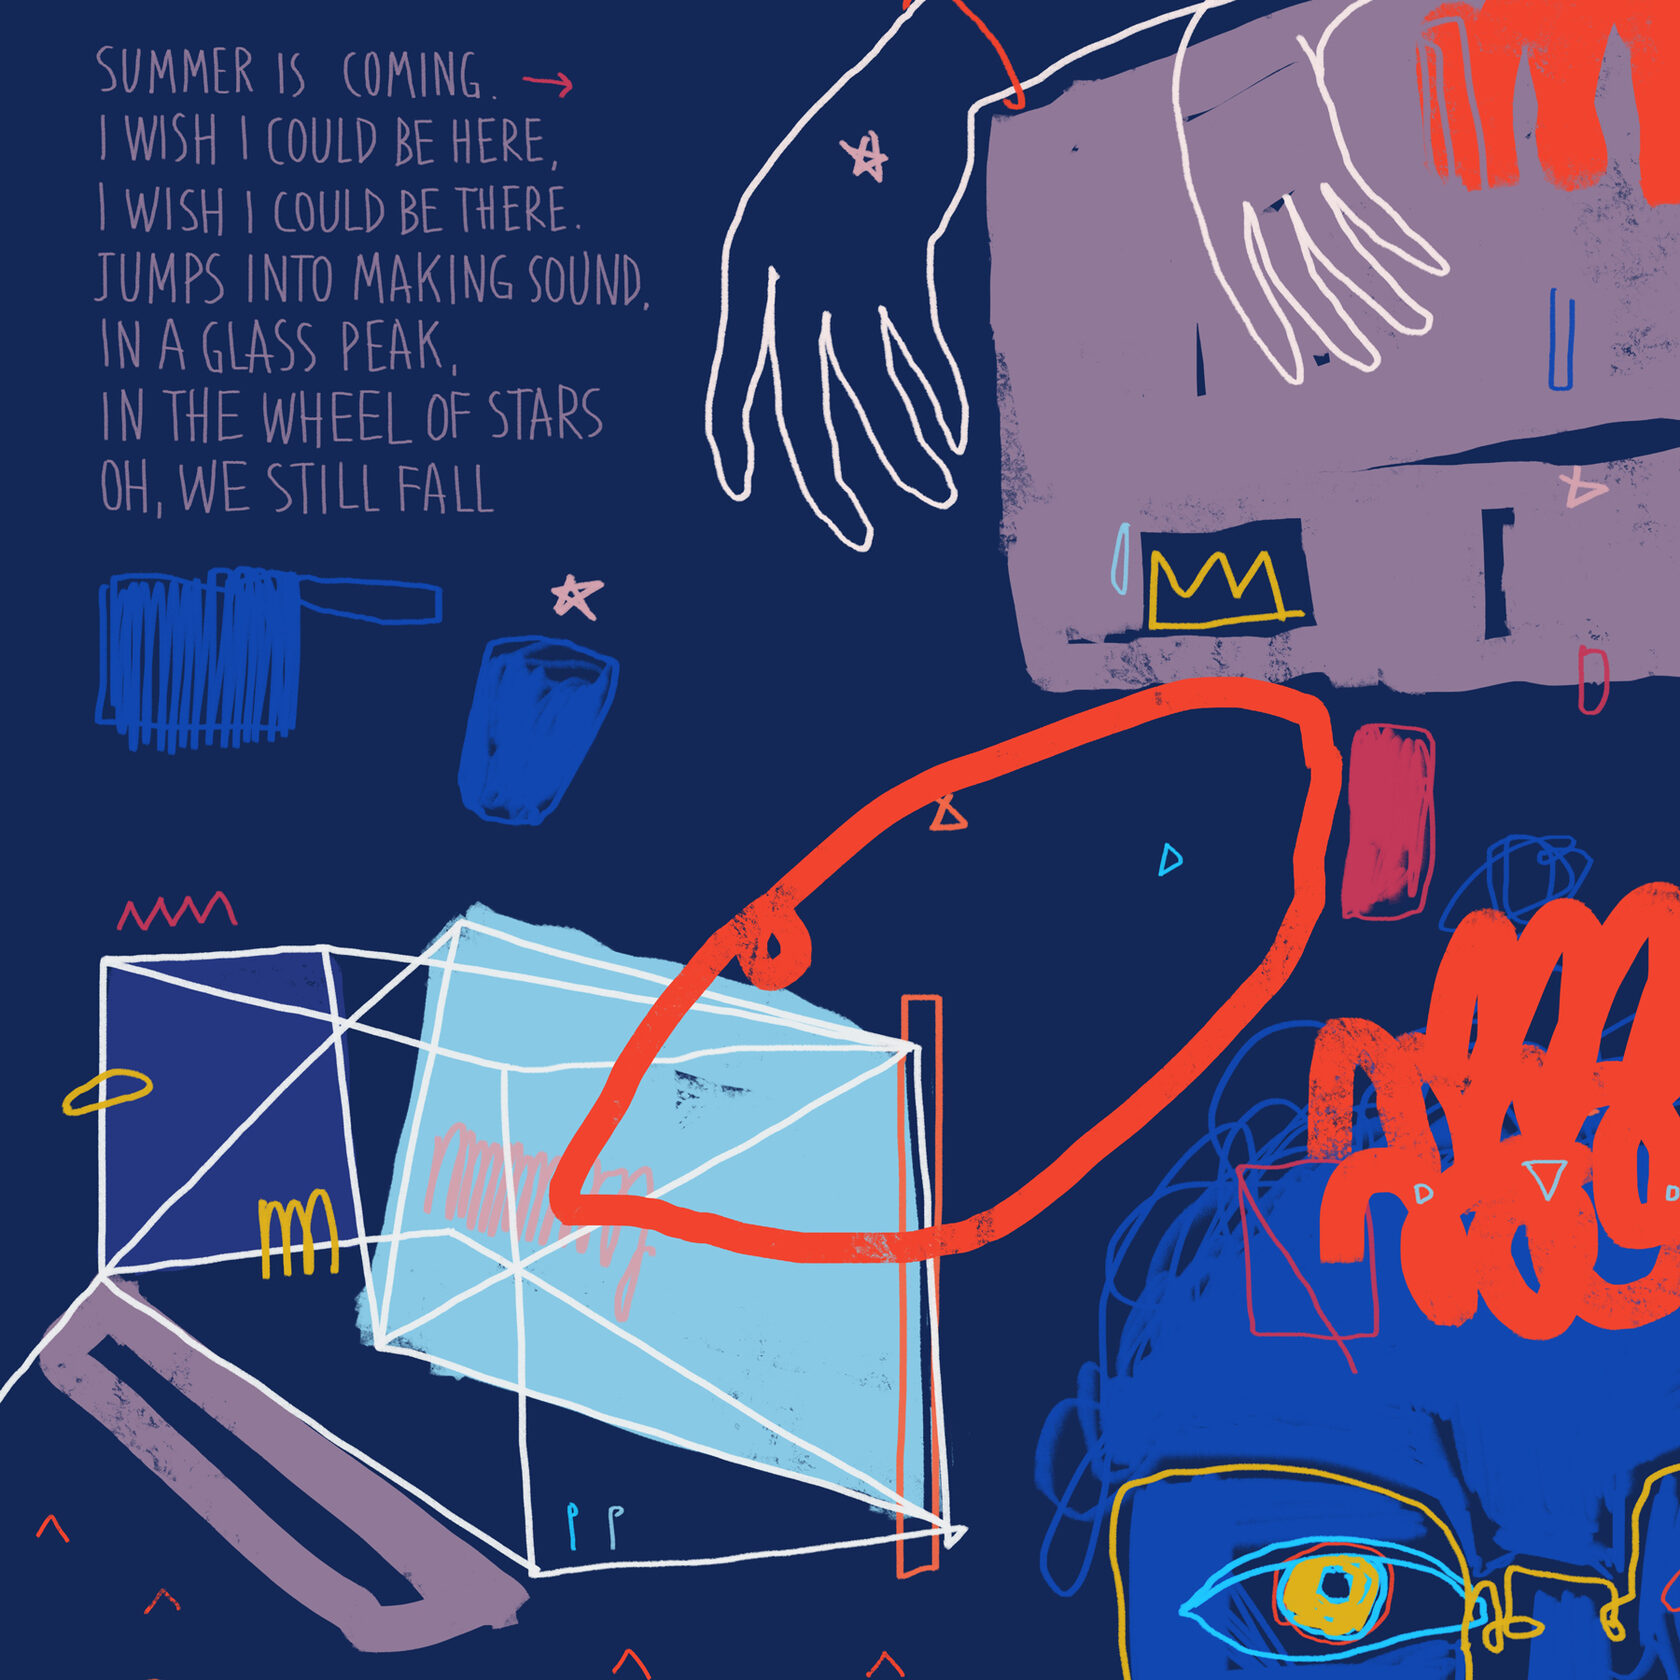 SUMMER IS COMING. →
I WISH I COULD BE HERE,
I WISH I COULD BE THERE.
JUMPS INTO MAKING SOUND,
IN A GLASS PEAK,
IN THE WHEEL OF STARS
OH, WE STILL FALL